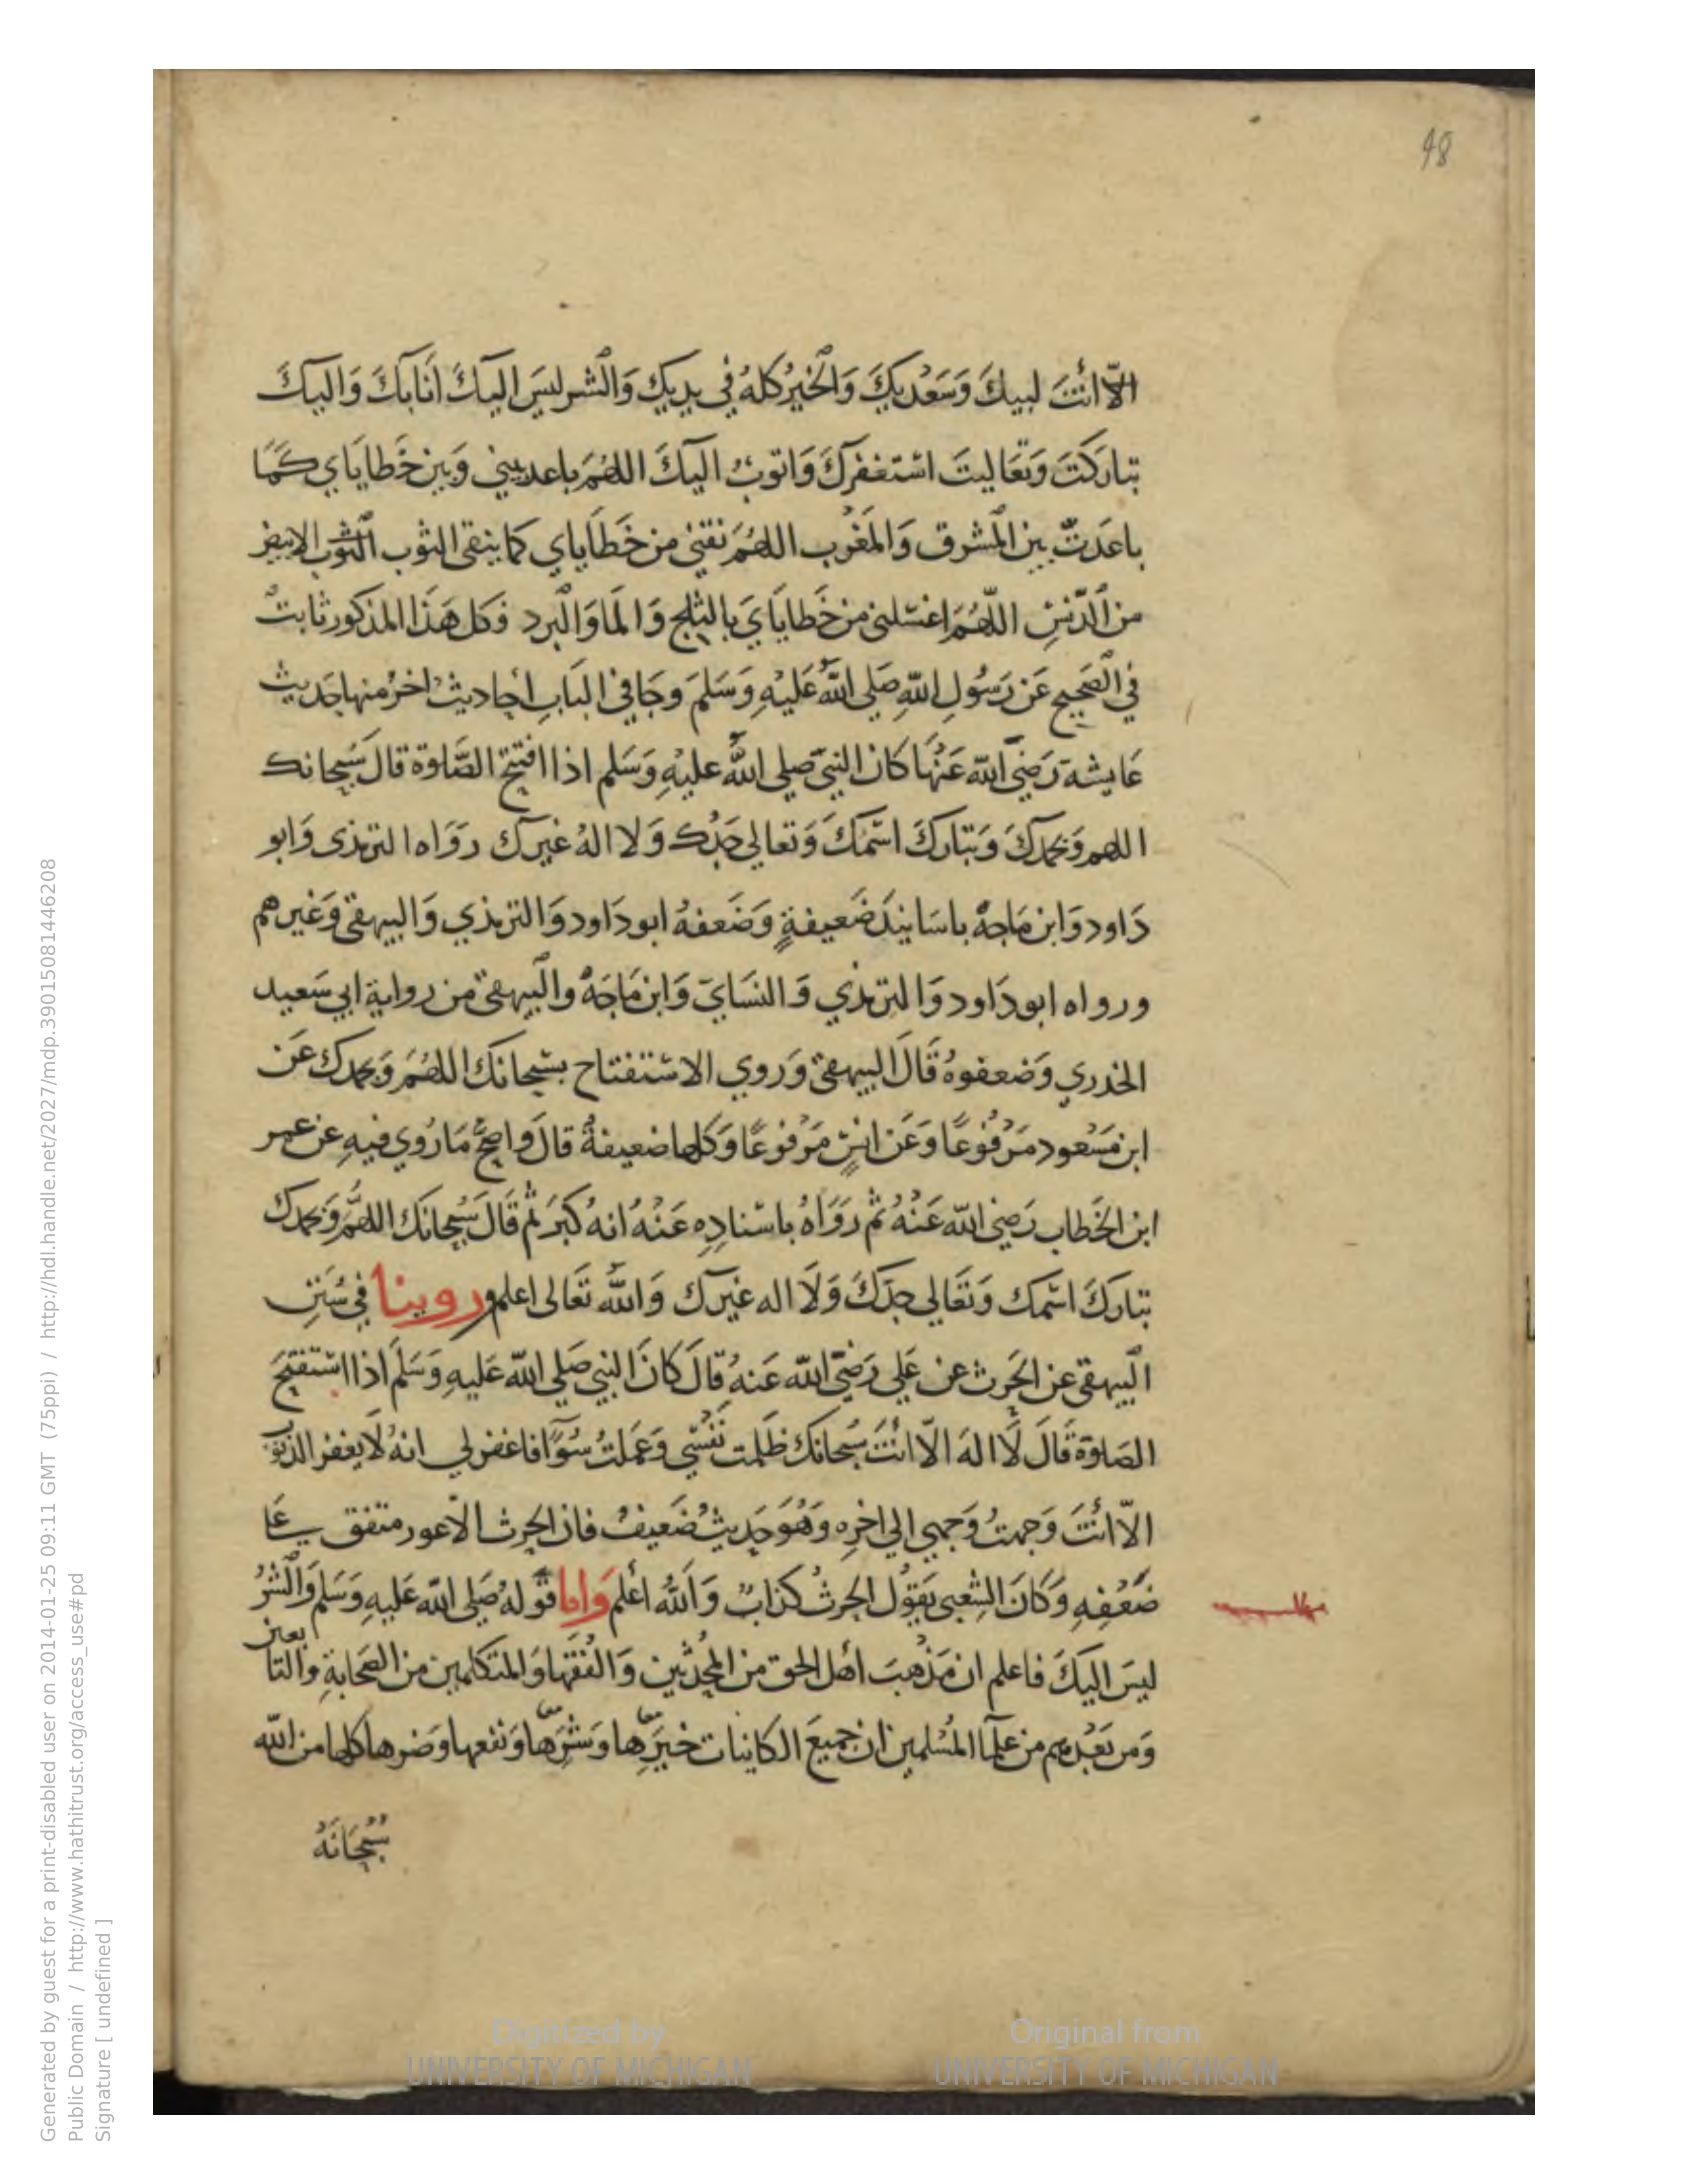 48
الّا انْتَ لبيكَ وَسَعْديكَ وَالخيرُ كلهُ في يديك وَالشر ليسَ اليكَ انَا بكَ وَاليكَ
تباركتَ وَتعَاليتَ استغفركَ وَاتوبُ اليكَ اللهُمَ باعد بيني وَبين خَطايَاي كَمَا
باعَدتّ بين المشرق وَالمَغْرب اللهُمَ نقني من خَطَاياي كما ينقى الثوب الثوب الابيض
من الدّنسِ اللّهُمَ اغسلني من خَطايَايَ بالثلج وَالمَا وَالبرد فكل هَذَا المذكور ثابتٌ
في الصَحيح عَن رَسُولِ اللهِ صَلي اللهُ عَليْهِ وَسَلمَ وجَا في البَابِ احاديث اخرُ منها حَديث
عَايشة رَضيَ الله عَنْهَا كَان النبيّ صلي اللهُ عليْهِ وَسَلم اذا افتتح الصَّلوة قالَ سُبحانك
اللهم وَبحمدكَ وَتباركَ اسْمكَ وَتعالي جَدُك وَلا الهُ غيرك رَوَاه الترمذى وَابو
دَاود وَابن مَاجهْ باسَانيدَ ضَعيفةٍ وَضَعفهُ ابو دَاود وَالترمذي وَالبيهقي وَغيرهم
ورواه ابو دَاود وَالترمذي وَالنسَاي وَابن مَاجَهْ والبيهقي من رواية ابي سَعيد
الخدري وَضعفوهُ قَالَ البيهقي وَروي الاستفتاح بسبحانكَ اللهُمَ وَبحمدك عَن
ابن مَسْعود مَرْفُوعًا وَعَن انسٍ مَرْفوعًا وَكلها ضعيفةٌ قالَ واصحُّ مَا رُوي فيهِ عن عمر
ابن الخَطاب رَضيَ الله عَنْهُ ثم رَوَاهُ باسْنادِهِ عَنْهُ انهُ كبرَ ثم قَالَ سُبحانَكَ اللهُمَّ وَبحمدك
تباركَ اسْمك وَتَعَالي جدكَ وَلَا اله غيرك وَاللهُ تَعَالى اعلم وروينا في سُنَنِ
البيهقي عن الحَرث عن عَلي رَضيَ الله عَنهُ قالَ كانَ النبي صَلي الله عَليهِ وَسَلَم اذا استفتحَ
الصَلوة قَالَ لَا الهَ الّا انْتَ سُبحانكَ ظَلمت نَفْسي وَعَملتُ سُوًا فاغفر لي انهُ لَا يغفر الذنوب
الّا انْتَ وَجهتُ وَجهي الي اخرِه وَهْوَ حَديثٌ ضَعيفٌ فان الحرث الاعور متفق عَلي
ضَعْفِهِ وَكانَ الشعبى يَقوُل الحرثُ كذابٌ وَاللهُ اعلم وَاما قولهُ صَلي الله عَليهِ وَسَلم وَالشرُ
ليسَ اليكَ فاعلم ان مَذْهبَ اهل الحق من المحدثين وَالفُقهَا وَالمتكلمين من الصَحابةِ والتابعين
وَمن بَعْدهم من علمآ المُسْلمين ان جميعَ الكاينات خيرِّها وَشرِّها وَنفعها وَضرها كلها من الله
سُبْحَانَهُ
Generated by guest for a print-disabled user on 2014-01-25 09:11 GMT (75ppi) / http://hdl.handle.net/2027/mdp.39015081446208
Public Domain / http://www.hathitrust.org/access_use#pd
Signature [ undefined ]
Digitized by
UNIVERSITY OF MICHIGAN
Original from
UNIVERSITY OF MICHIGAN